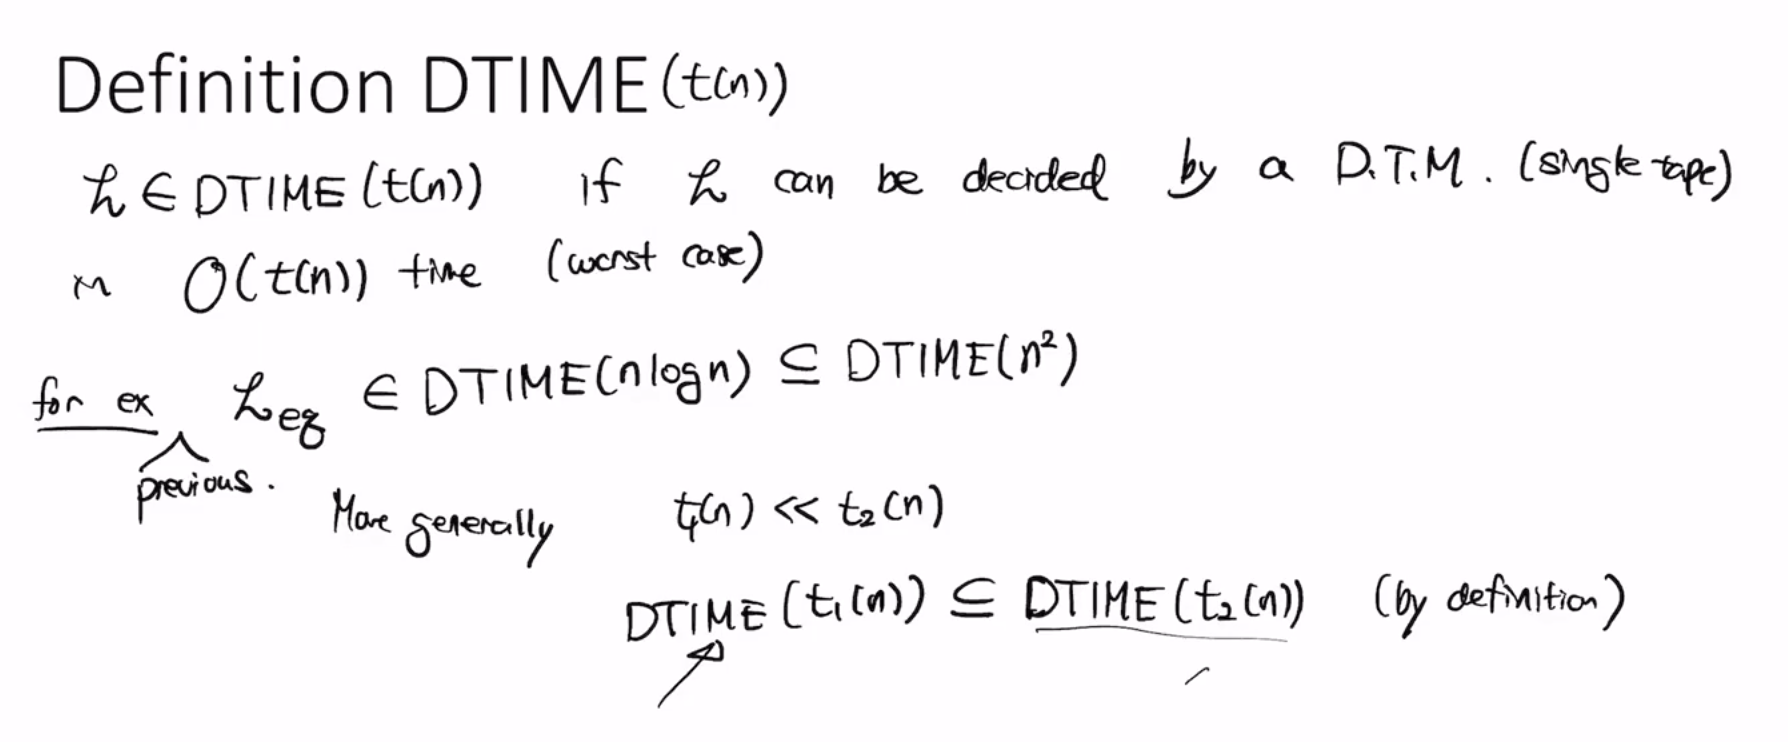 Definition DTIME(t(n))
L ∈ DTIME(t(n)) if L can be decided by a D.T.M. (single tape)
in O(t(n)) time (worst case)
for ex L_eq ∈ DTIME(n log n) ⊆ DTIME(n²)
previous.
More generally t₁(n) << t₂(n)
DTIME(t₁(n)) ⊆ DTIME(t₂(n)) (by definition)